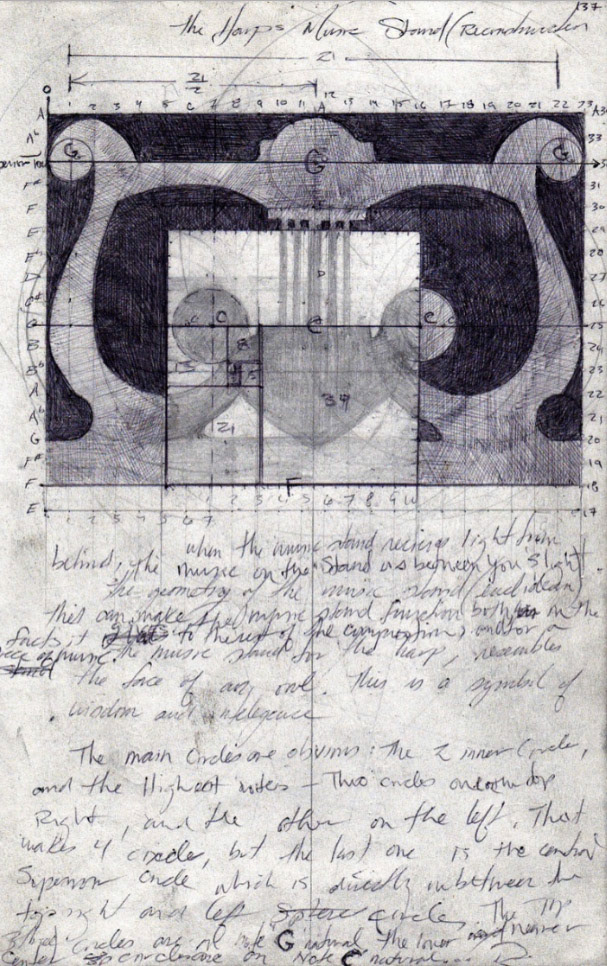 137
The Harps Music Stand (Reconstruction
21
21
2
12
0
A 1 2 3 4 5 6 C 7 8 9 10 11 A 13 14 15 16 17 18 19 20 21 22 23
Ab 33
G G G
F# 31
F 30
E 29
D
C C C
25
B 8
Bb
A 22
Ab 34
G 21 20
F#
F F 18
1 2 3 4 5 6 7 8 9 10
E 17
when the music stand recieves light from
behind, the music on the stand is between you & light
the geometry of the music stand (euclidean)
this can make the music stand function both in the
facts it to the rest of the composition and/or a
music. the music stand for the harp resembles
the face of an owl. This is a symbol of
wisdom and inteligence
The main Circles are obvious: The 2 inner Circle,
and the Highest notes - Two circles on the top
Right, and the other on the left. That
makes 4 circle, but the last one is the central
Superior Circle which is directly inbetween the
top right and left circle. The Top
3 circles are all note G natural the lower inner
Center enclosure on Note C natural...